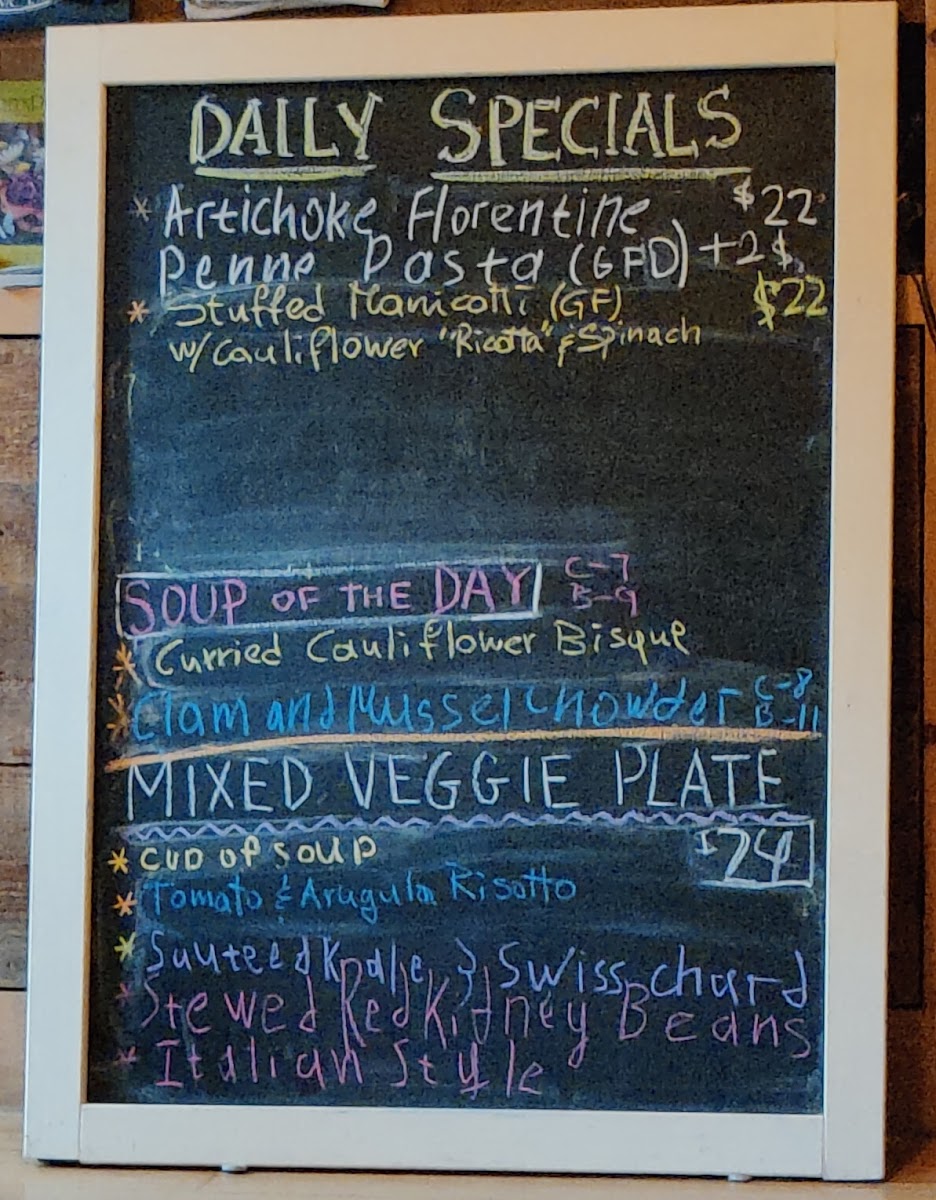 DAILY SPECIALS
* Artichoke Florentine $22
Penne Pasta (GFD) +2$
* Stuffed Manicotti (GF) $22
w/ Cauliflower "Ricotta" & Spinach
SOUP OF THE DAY C-7
B-9
* Curried Cauliflower Bisque
* Clam and Mussel Chowder C-8
B-11
MIXED VEGGIE PLATE
$24
* CUP OF SOUP
* Tomato & Arugula Risotto
* Sauteed Kale & Swiss chard
* Stewed Red Kidney Beans
* Italian Style